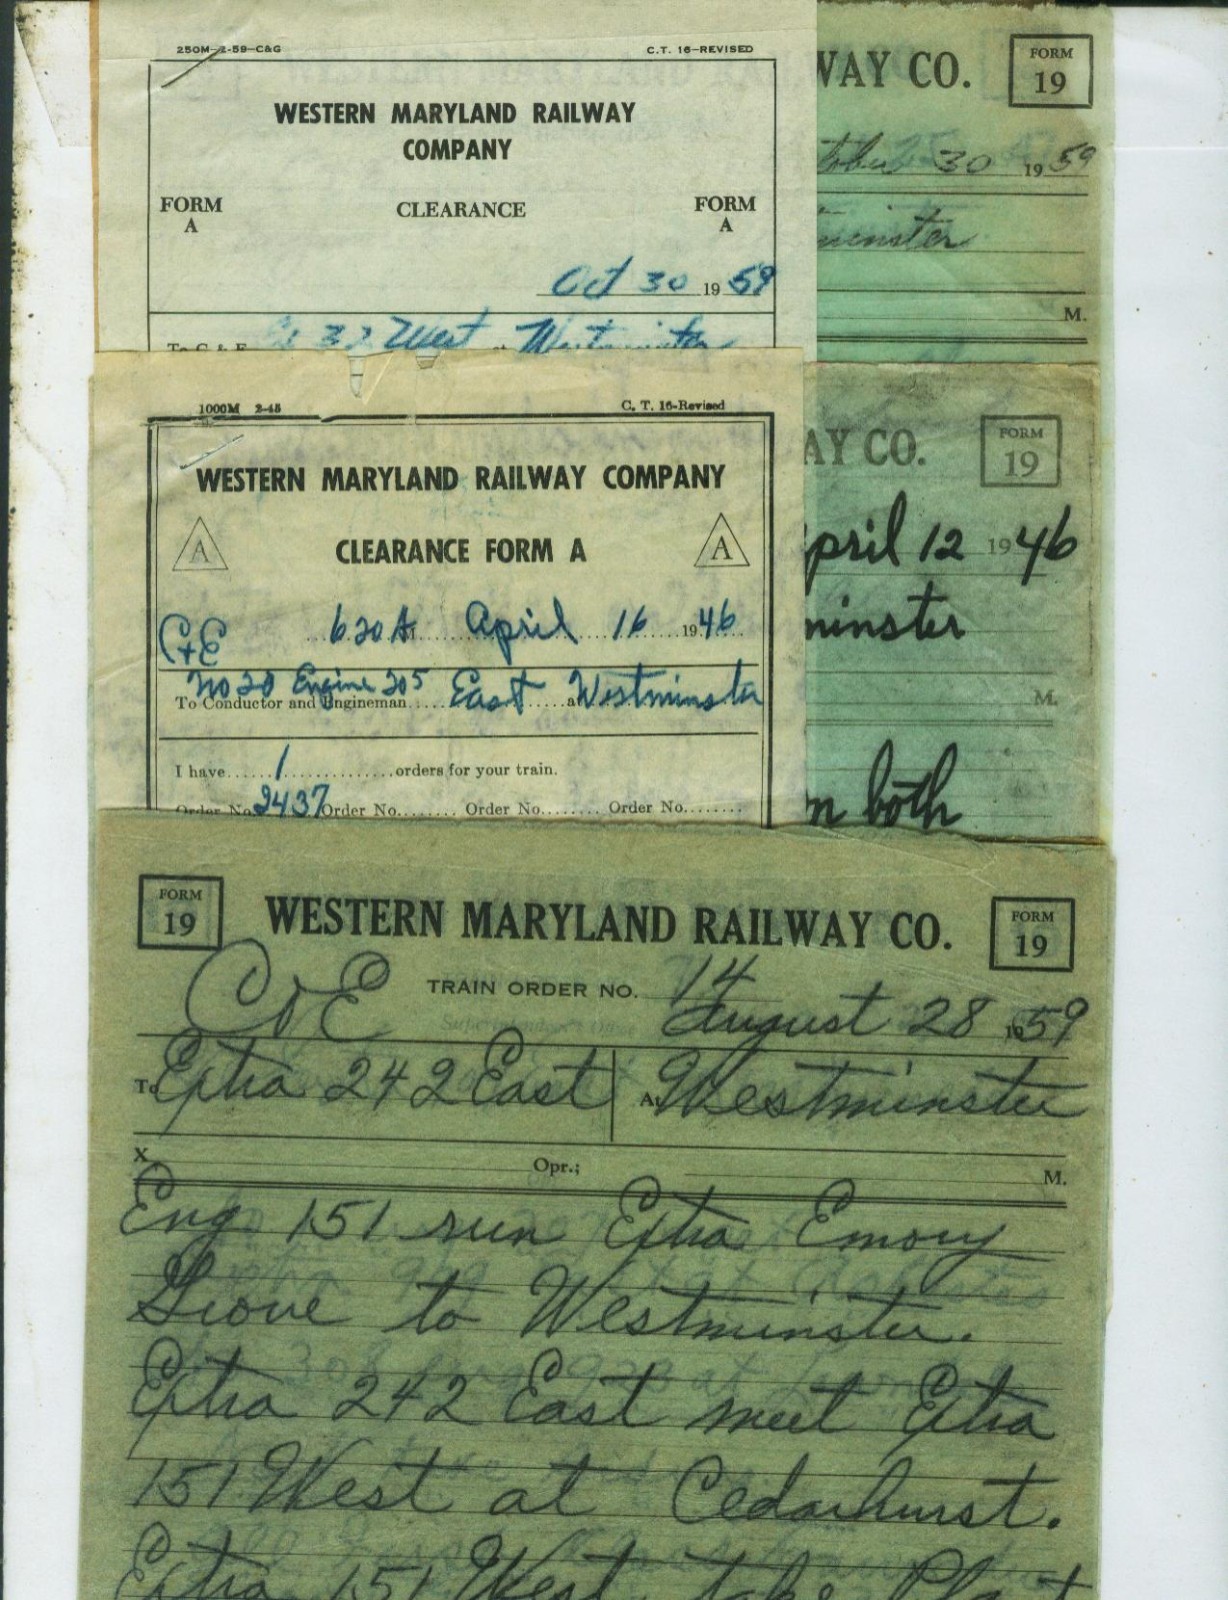 250M-2-59-C&G C.T. 16-REVISED
WESTERN MARYLAND RAILWAY
COMPANY
FORM A CLEARANCE FORM A
Oct 30 1959
To C & E 32 West at Westminster
WAY CO. FORM 19
tober 30 1959
minster
M.
1000M 2-45 C. T. 16-Revised
WESTERN MARYLAND RAILWAY COMPANY
A CLEARANCE FORM A A
C+E 620 A M April 16 1946
No 20 Engine 205
To Conductor and Engineman East at Westminster
I have 1 orders for your train.
Order No. 2437 Order No. Order No. Order No.
AY CO. FORM 19
pril 12 1946
minster
M.
n both
FORM 19 WESTERN MARYLAND RAILWAY CO. FORM 19
C & E TRAIN ORDER NO. 14
August 28 1959
To Extra 242 East At Westminster
X Opr.; M.
Eng 151 run Extra Emory
Grove to Westminster.
Extra 242 East meet Extra
151 West at Cedarhurst.
Extra 151 West take